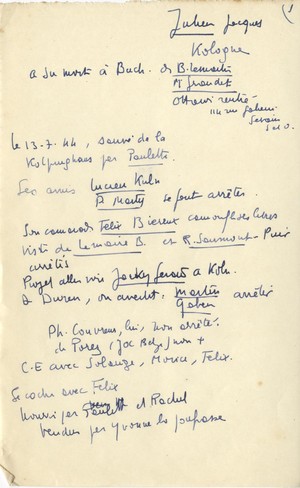 Julien Jacques
Kologne
a su morts à Buch. de B. Lemaitre
M Grandet
rentré
114 rue
S et O.
Le 13-7-44, sauvé de la
Kolpinghaus par Paulette.
Ses amis Lucien Kuhn
P. Marty se font arrêter.
Son camarade Felix Biereux camoufle ses livres
Visite de Lemaire B. et R. Saumont. Puis
arrêtés
Puget allen voir Jacky à Koln.
A Duren, on avertit: Martin arrêtés
Gaben
Ph. Couvreur, lui, non arrêté.
de Porez (Joc Belge) non +
C-E avec Solange, Morice, Felix.
Se cache avec Felix
Nourri par Paulette et Rachel
Vendus par Yvonne la